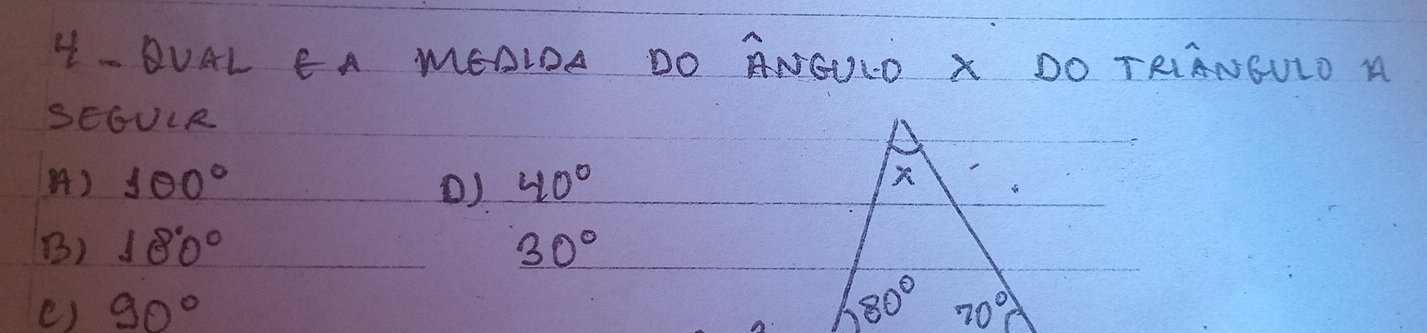 4 - QUAL E A MEDIDA DO ÂNGULO X DO TRIÂNGULO A
SEGUIR
A) 100°
D) 40°
B) 180°
30°
C) 90°
x
80°
70°